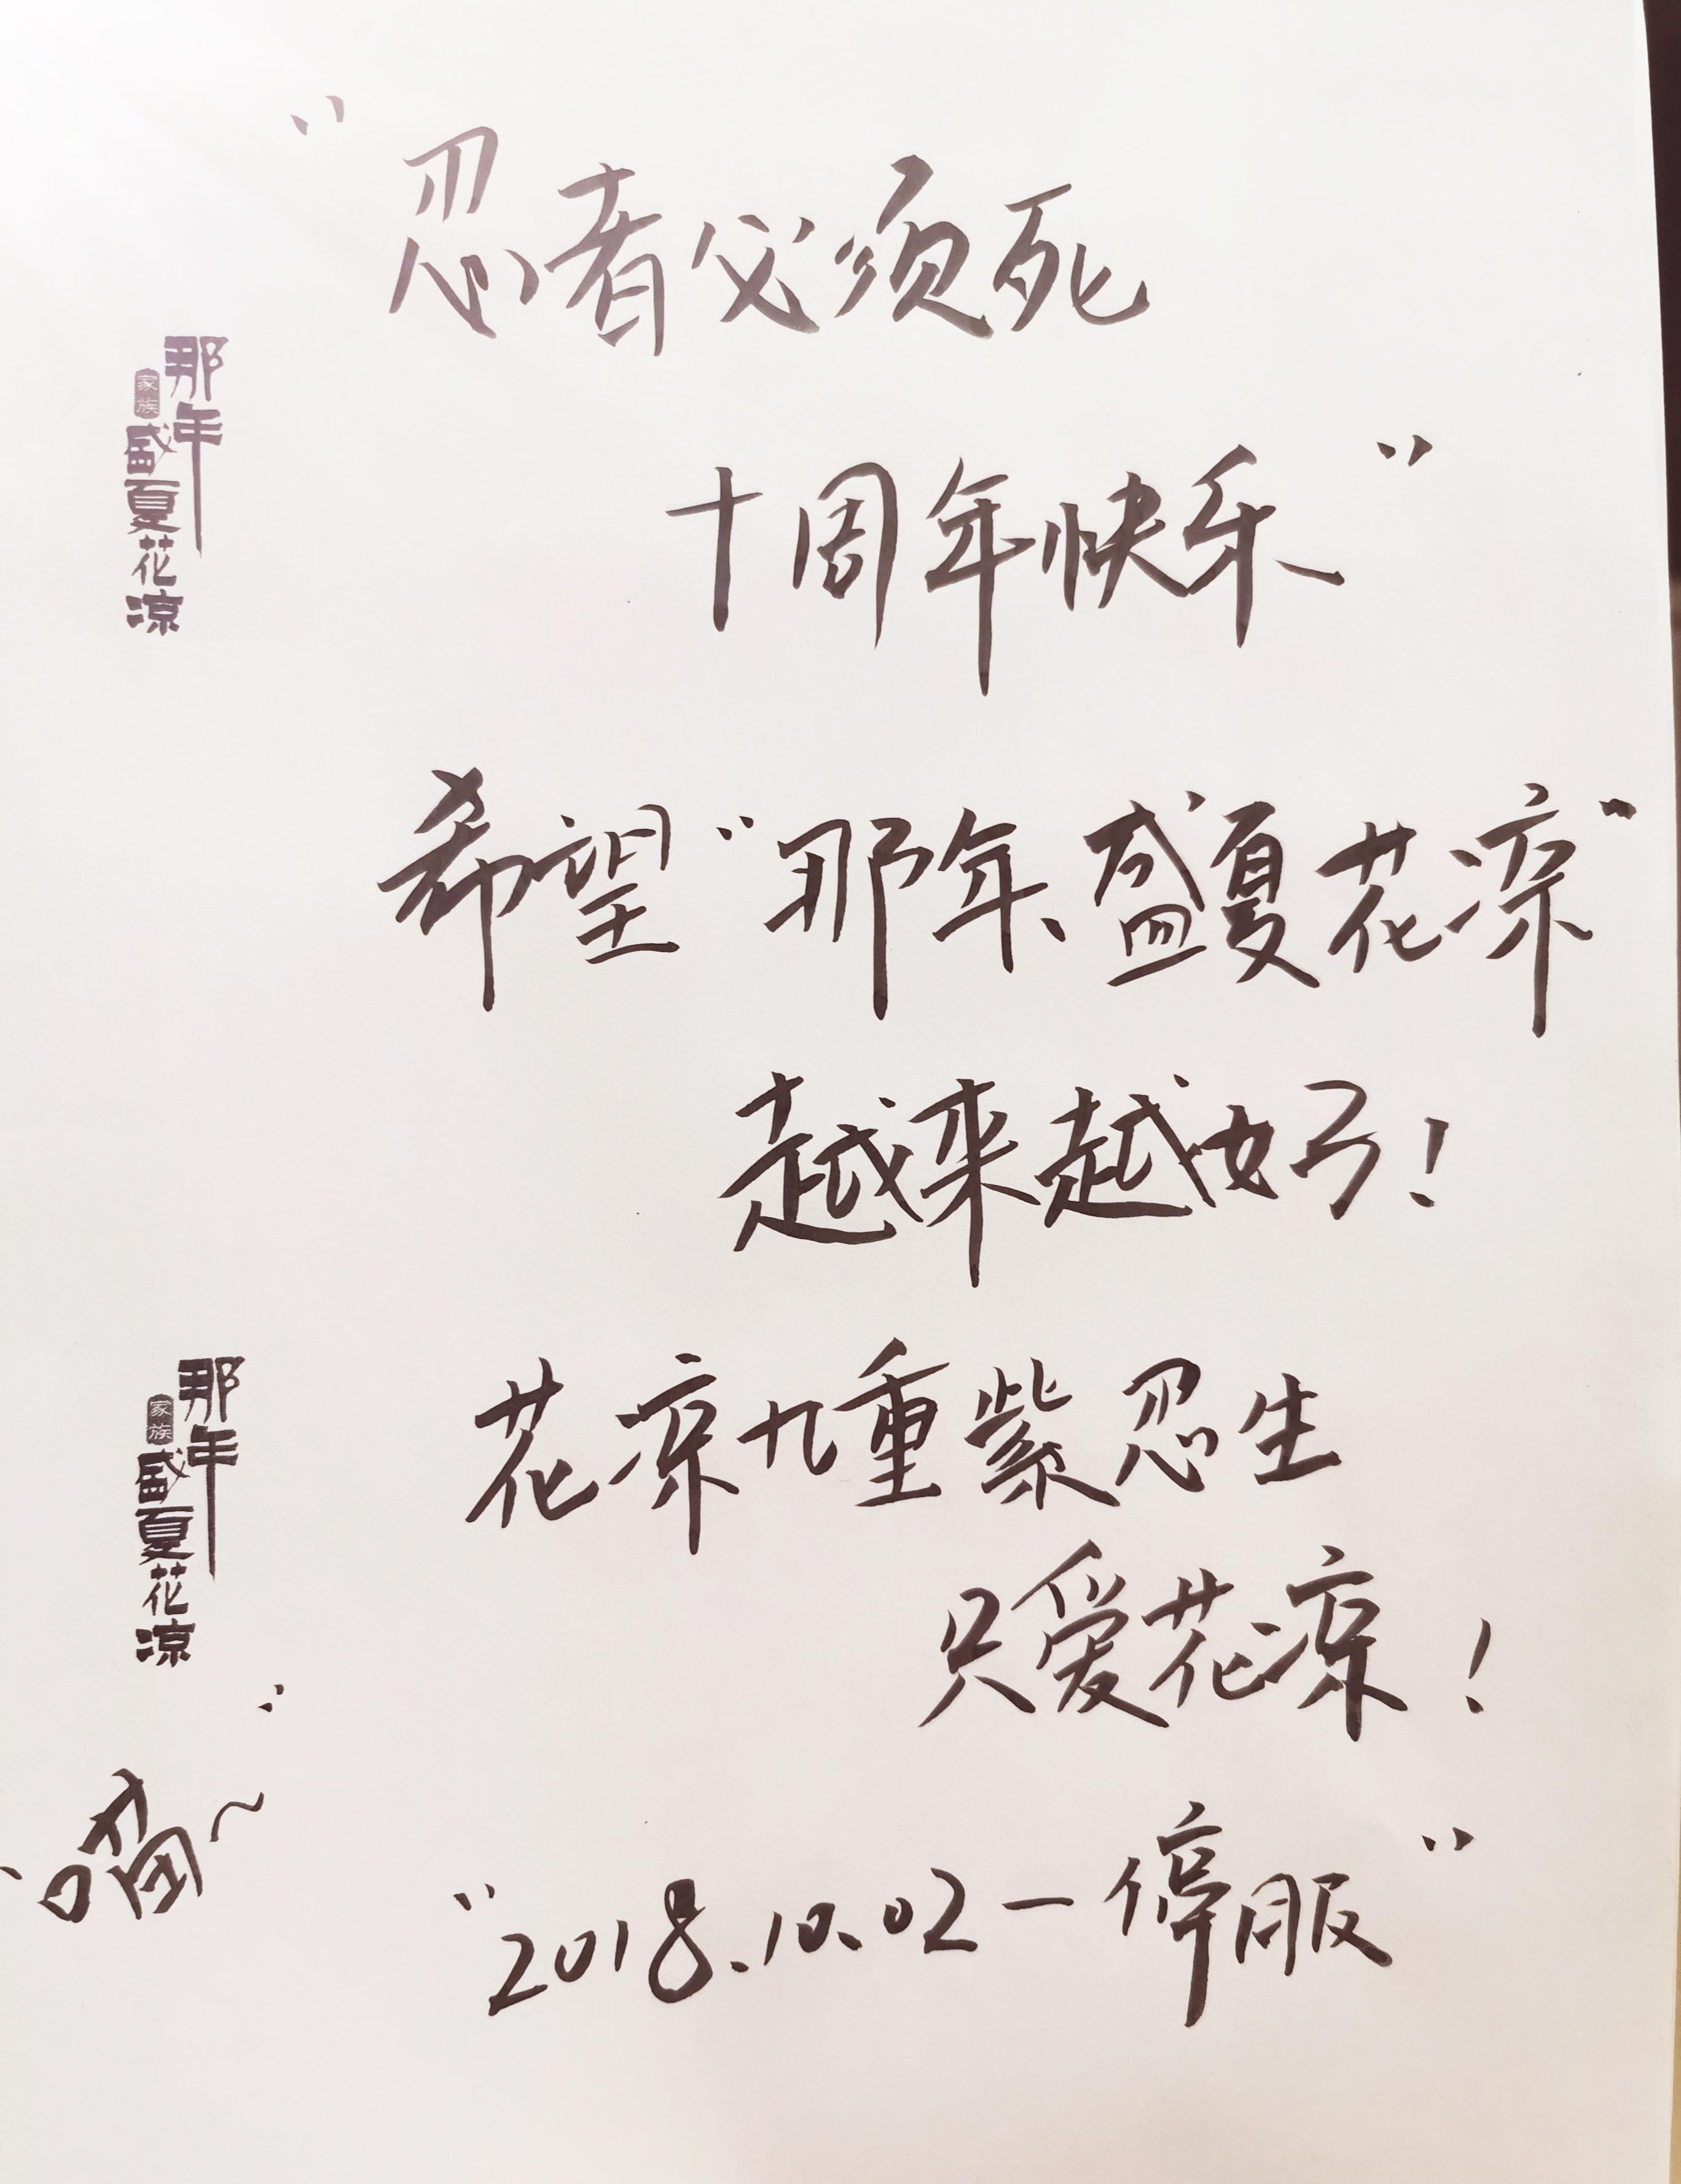 “忍者必须死
十周年快乐”
希望“那年、盛夏花凉”
越来越好！
花凉九重紫忍生
只爱花凉！
“2018.10.02—停服”
那年
家族
盛夏花凉
那年
家族
盛夏花凉